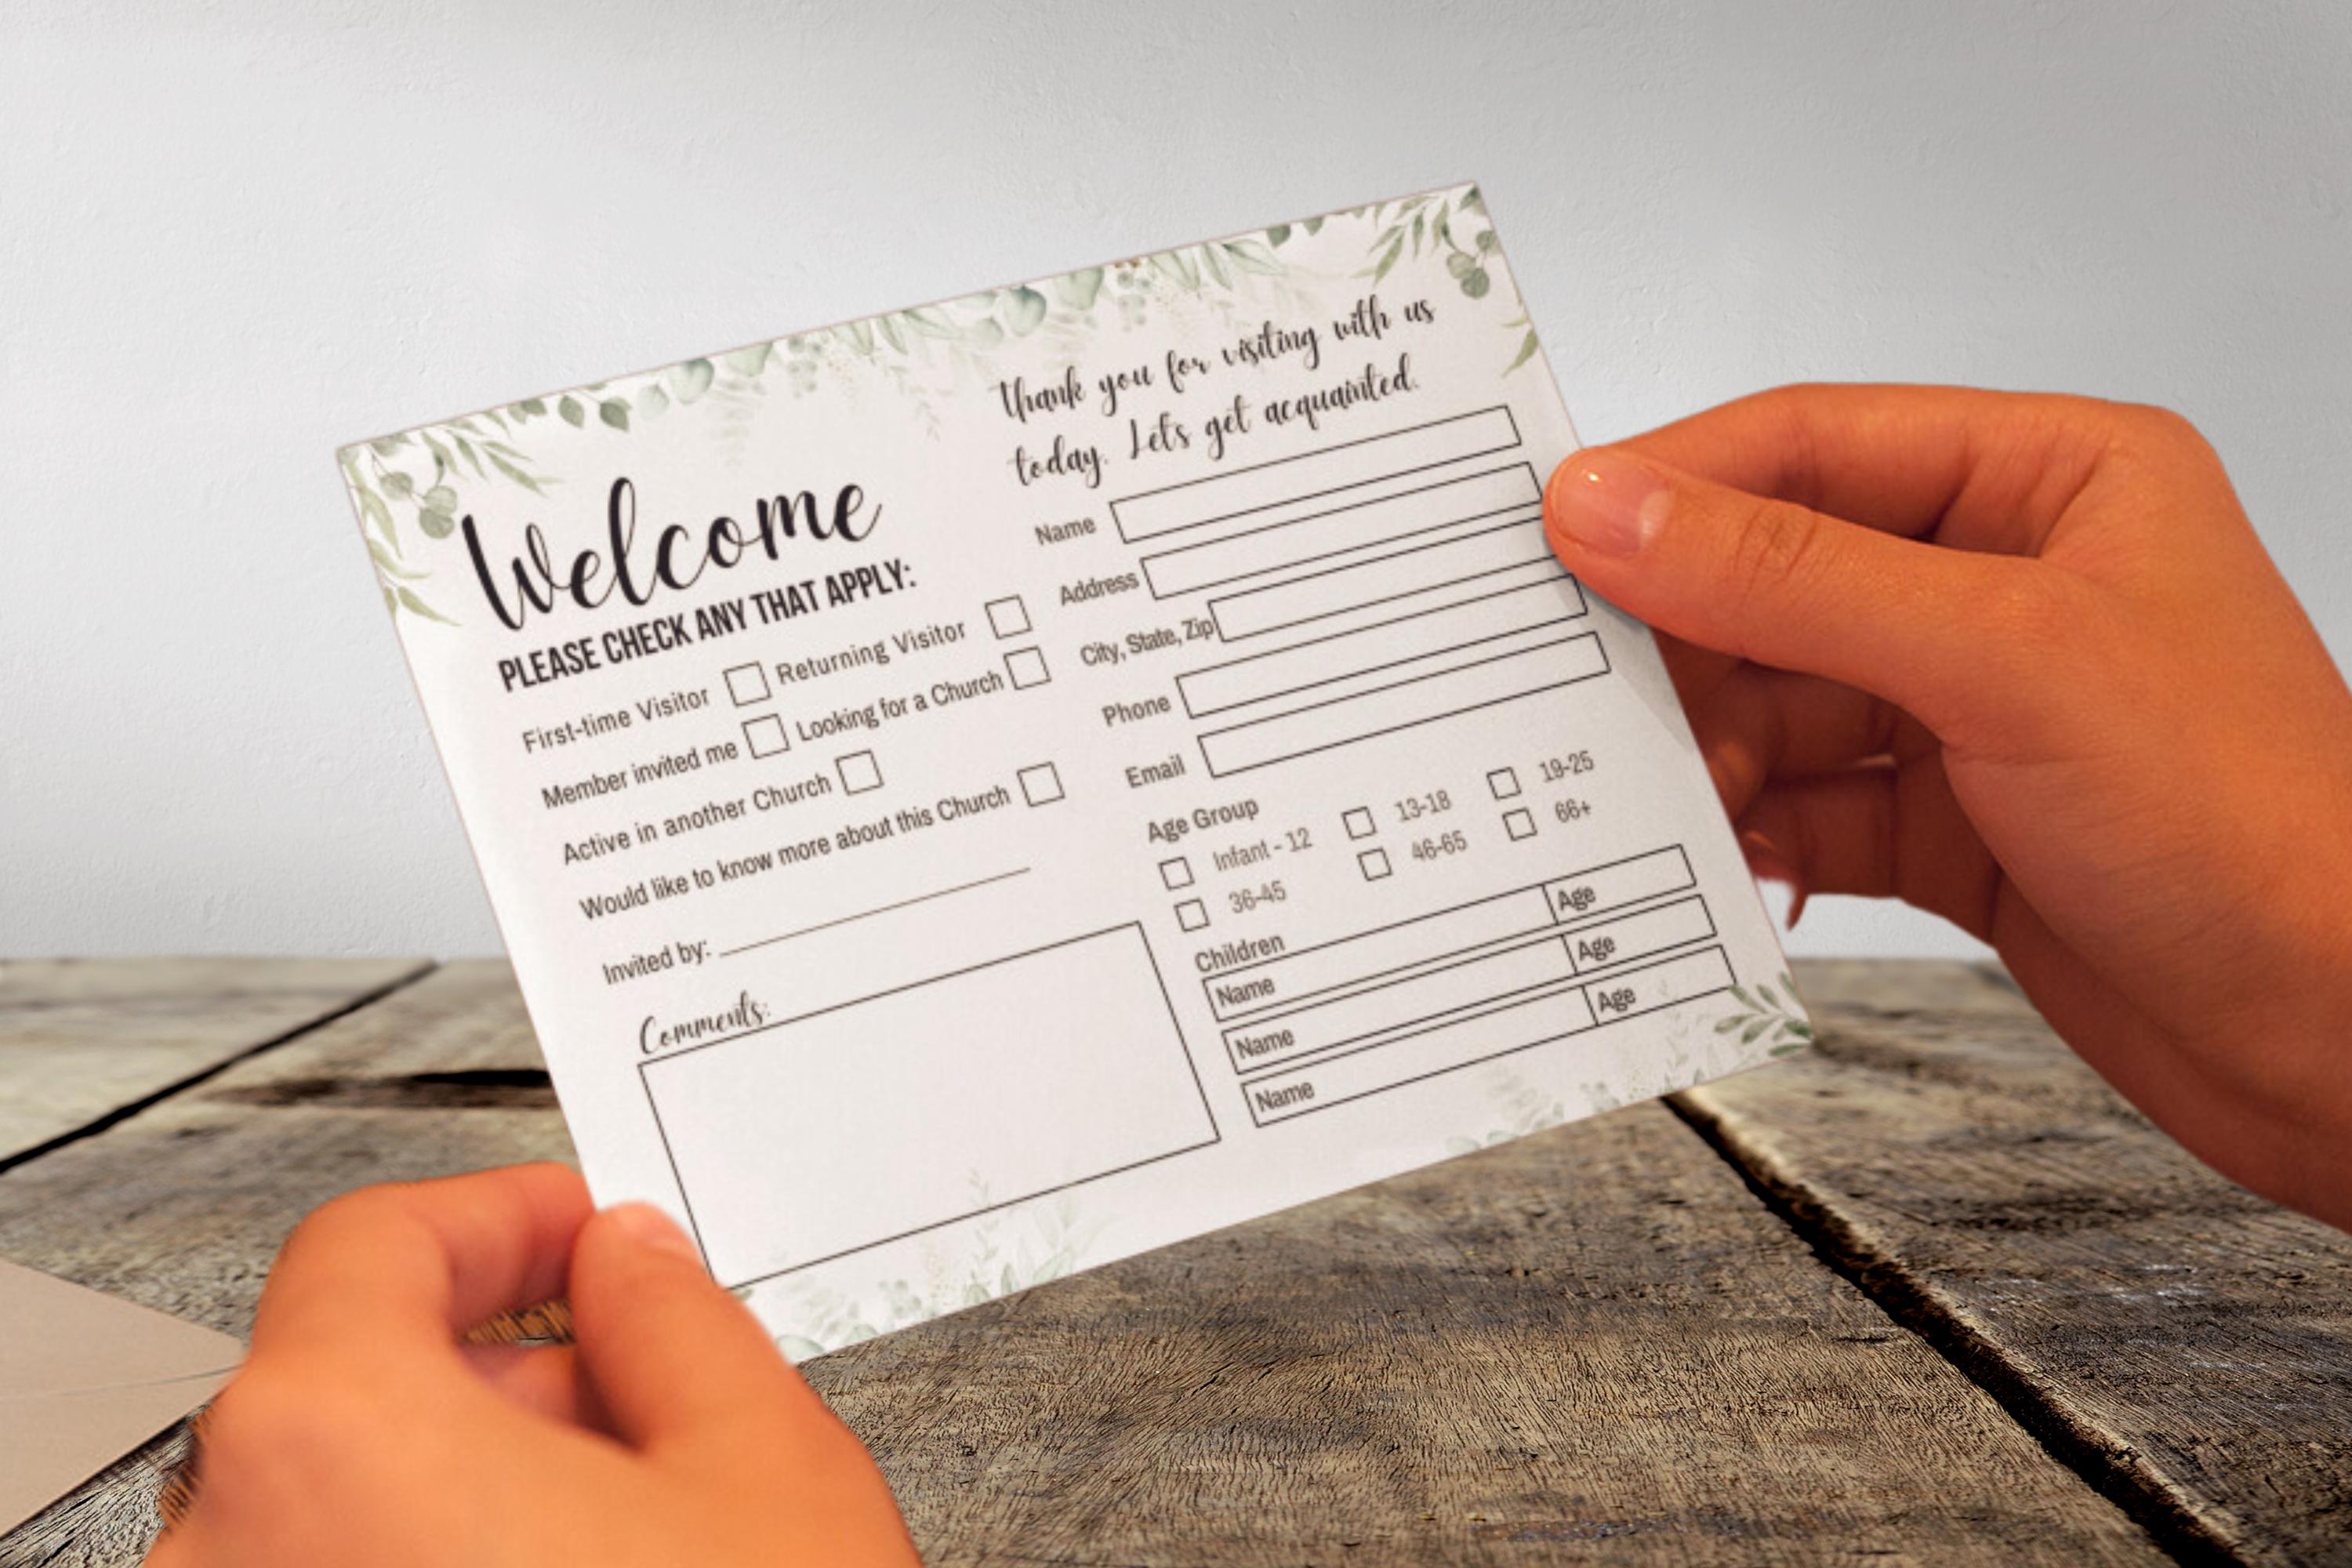 Welcome
PLEASE CHECK ANY THAT APPLY:
First-time Visitor Returning Visitor
Member invited me Looking for a Church
Active in another Church
Would like to know more about this Church
Invited by:
Comments:
Thank you for visiting with us
today. Let's get acquainted.
Name
Address
City, State, Zip
Phone
Email
Age Group
Infant - 12 13-18 19-25
36-45 46-65 66+
Children
Name Age
Name Age
Name Age